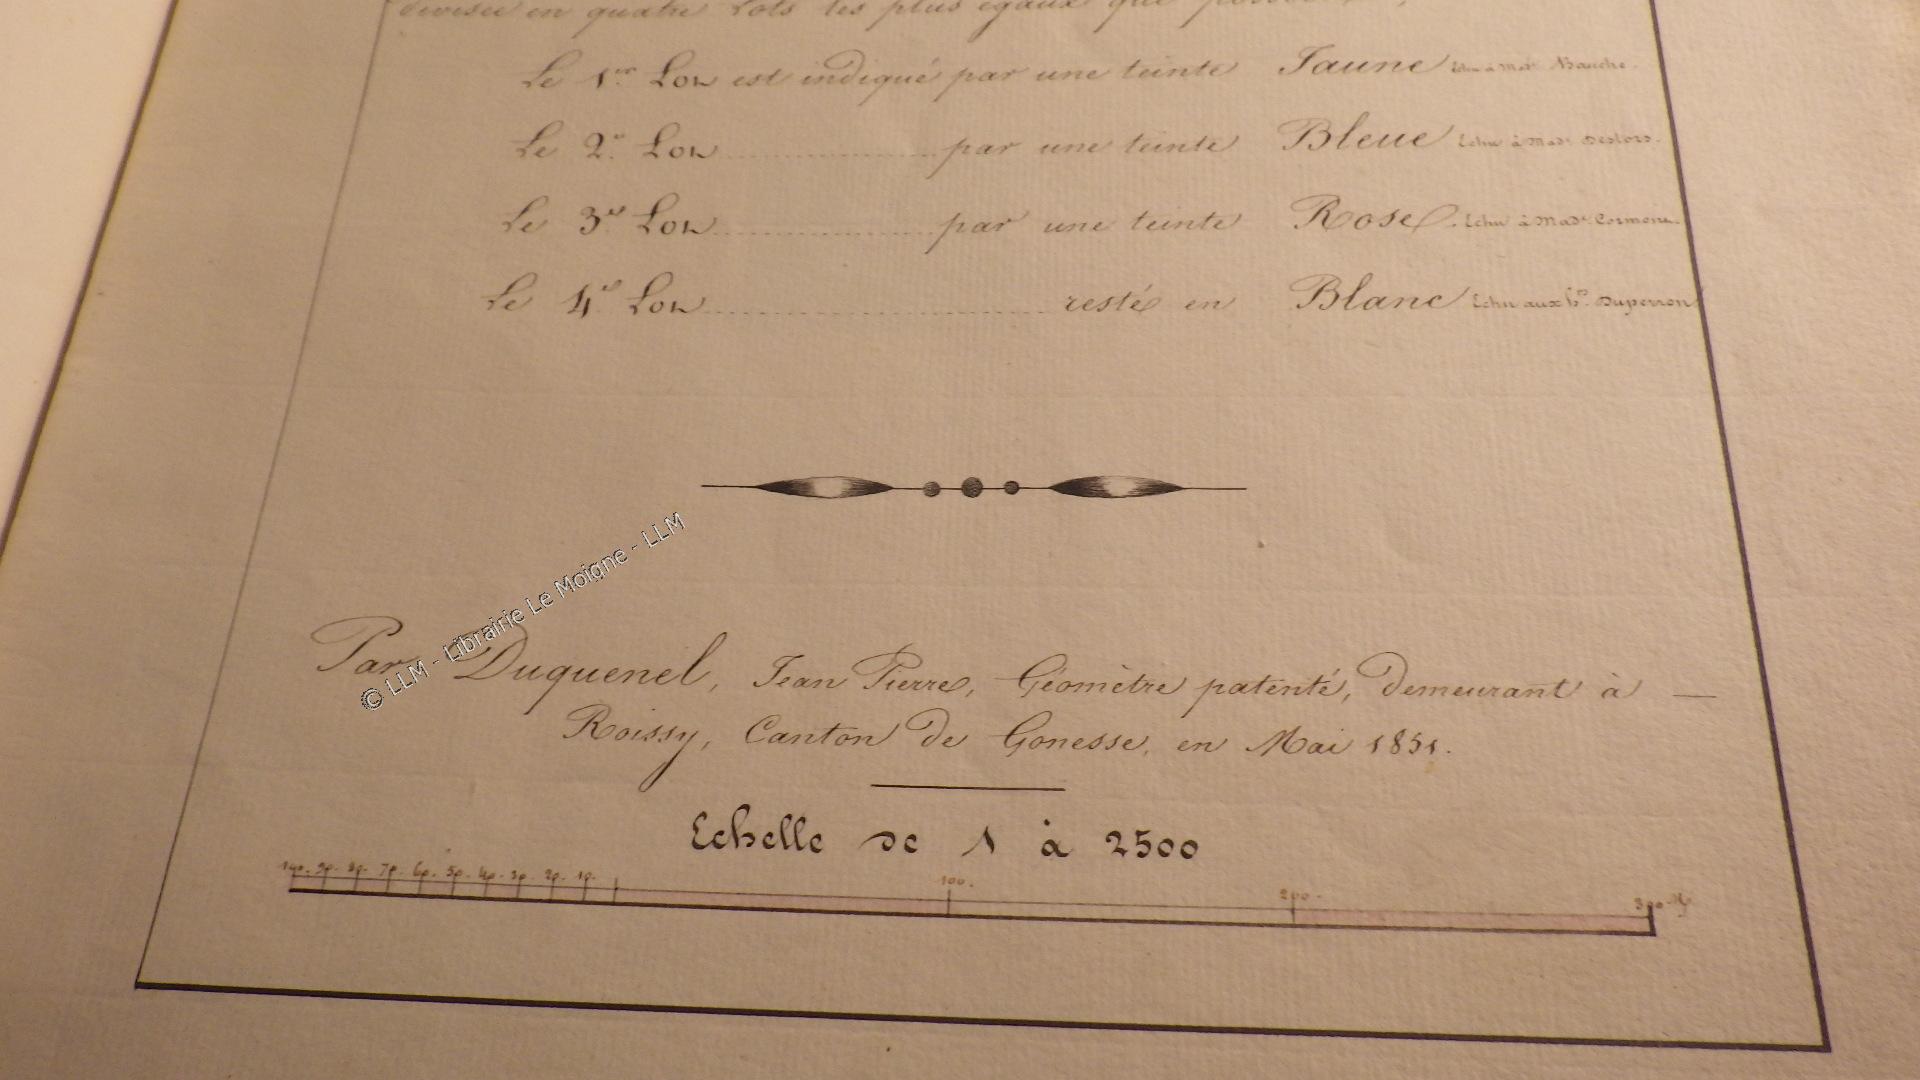 divisée en quatre Lots les plus égaux que
Le 1er Lot est indiqué par une teinte Jaune Echu à Made Bauche.
Le 2e Lot par une teinte Bleue Echu à Made Deslors.
Le 3e Lot par une teinte Rose. Echu à Made
Le 4e Lot resté en Blanc Echu aux hrs Duperron
© LLM - Librairie Le Moigne - LLM
Par Duquenel, Jean Pierre, Géomètre patenté, demeurant à —
Roissy, Canton de Gonesse, en Mai 1851.
Echelle de 1 à 2500
100. 90. 80. 70. 60. 50. 40. 30. 20. 10. 100. 200. 300 M